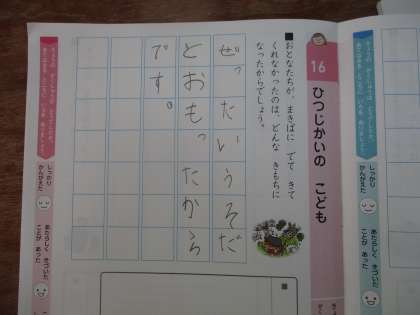 16
ひつじかいの こども
■おとなたちが、まきばに でて きて
くれなかったのは、どんな きもちに
なったからでしょう。
ぜったいうそだ
とおもったから
です。
■
しっかり
かんがえた
あたらしく きづいた
ことが あった
しっかり
かんがえた
あたらしく きづいた
ことが あった